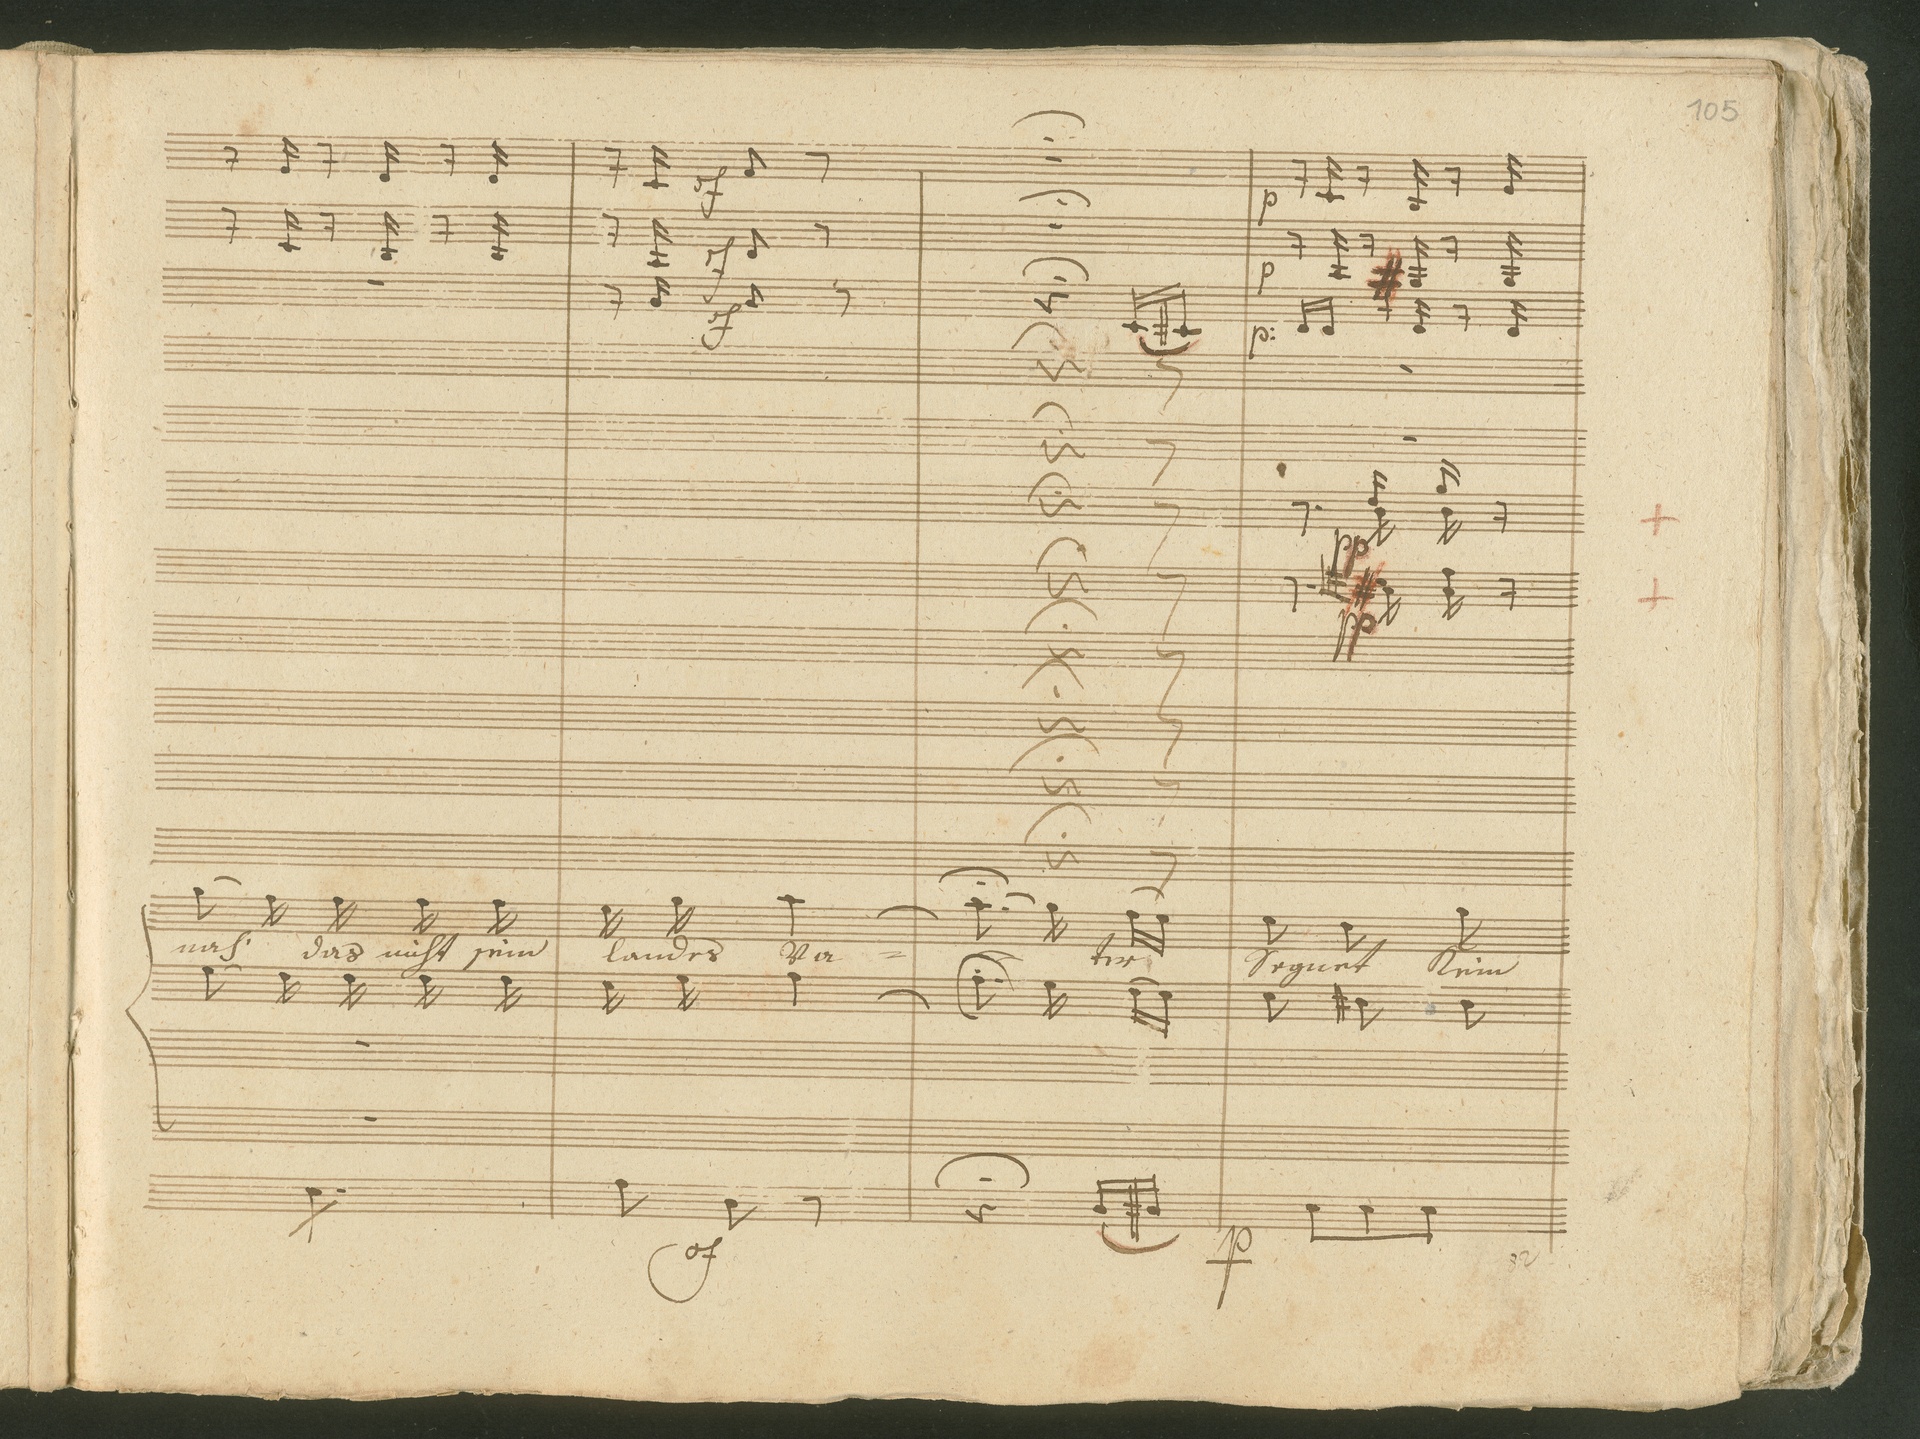 105
sf
sf
sf
p
p
p:
pp
pp
nah' das nicht sein Landes Va = ter Segnet Kein
sf
p
32